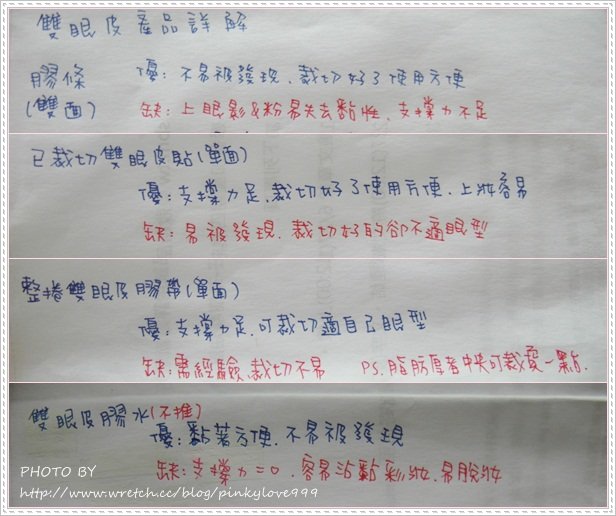 雙眼皮產品詳解
膠條 優：不易被發現、裁切好了使用方便
(雙面) 缺：上眼影&粉易失去黏性、支撐力不足
已裁切雙眼皮貼(單面)
優：支撐力足、裁切好了使用方便、上妝容易
缺：易被發現、裁切好的卻不適眼型
整捲雙眼皮膠帶(單面)
優：支撐力足、可裁切適自己眼型
缺：需經驗、裁切不易 PS.脂肪厚者中央可裁寬一點.
雙眼皮膠水(不推)
優：黏著方便、不易被發現
缺：支撐力=0、容易沾黏彩妝、易脫妝
PHOTO BY
http://www.wretch.cc/blog/pinkylove999